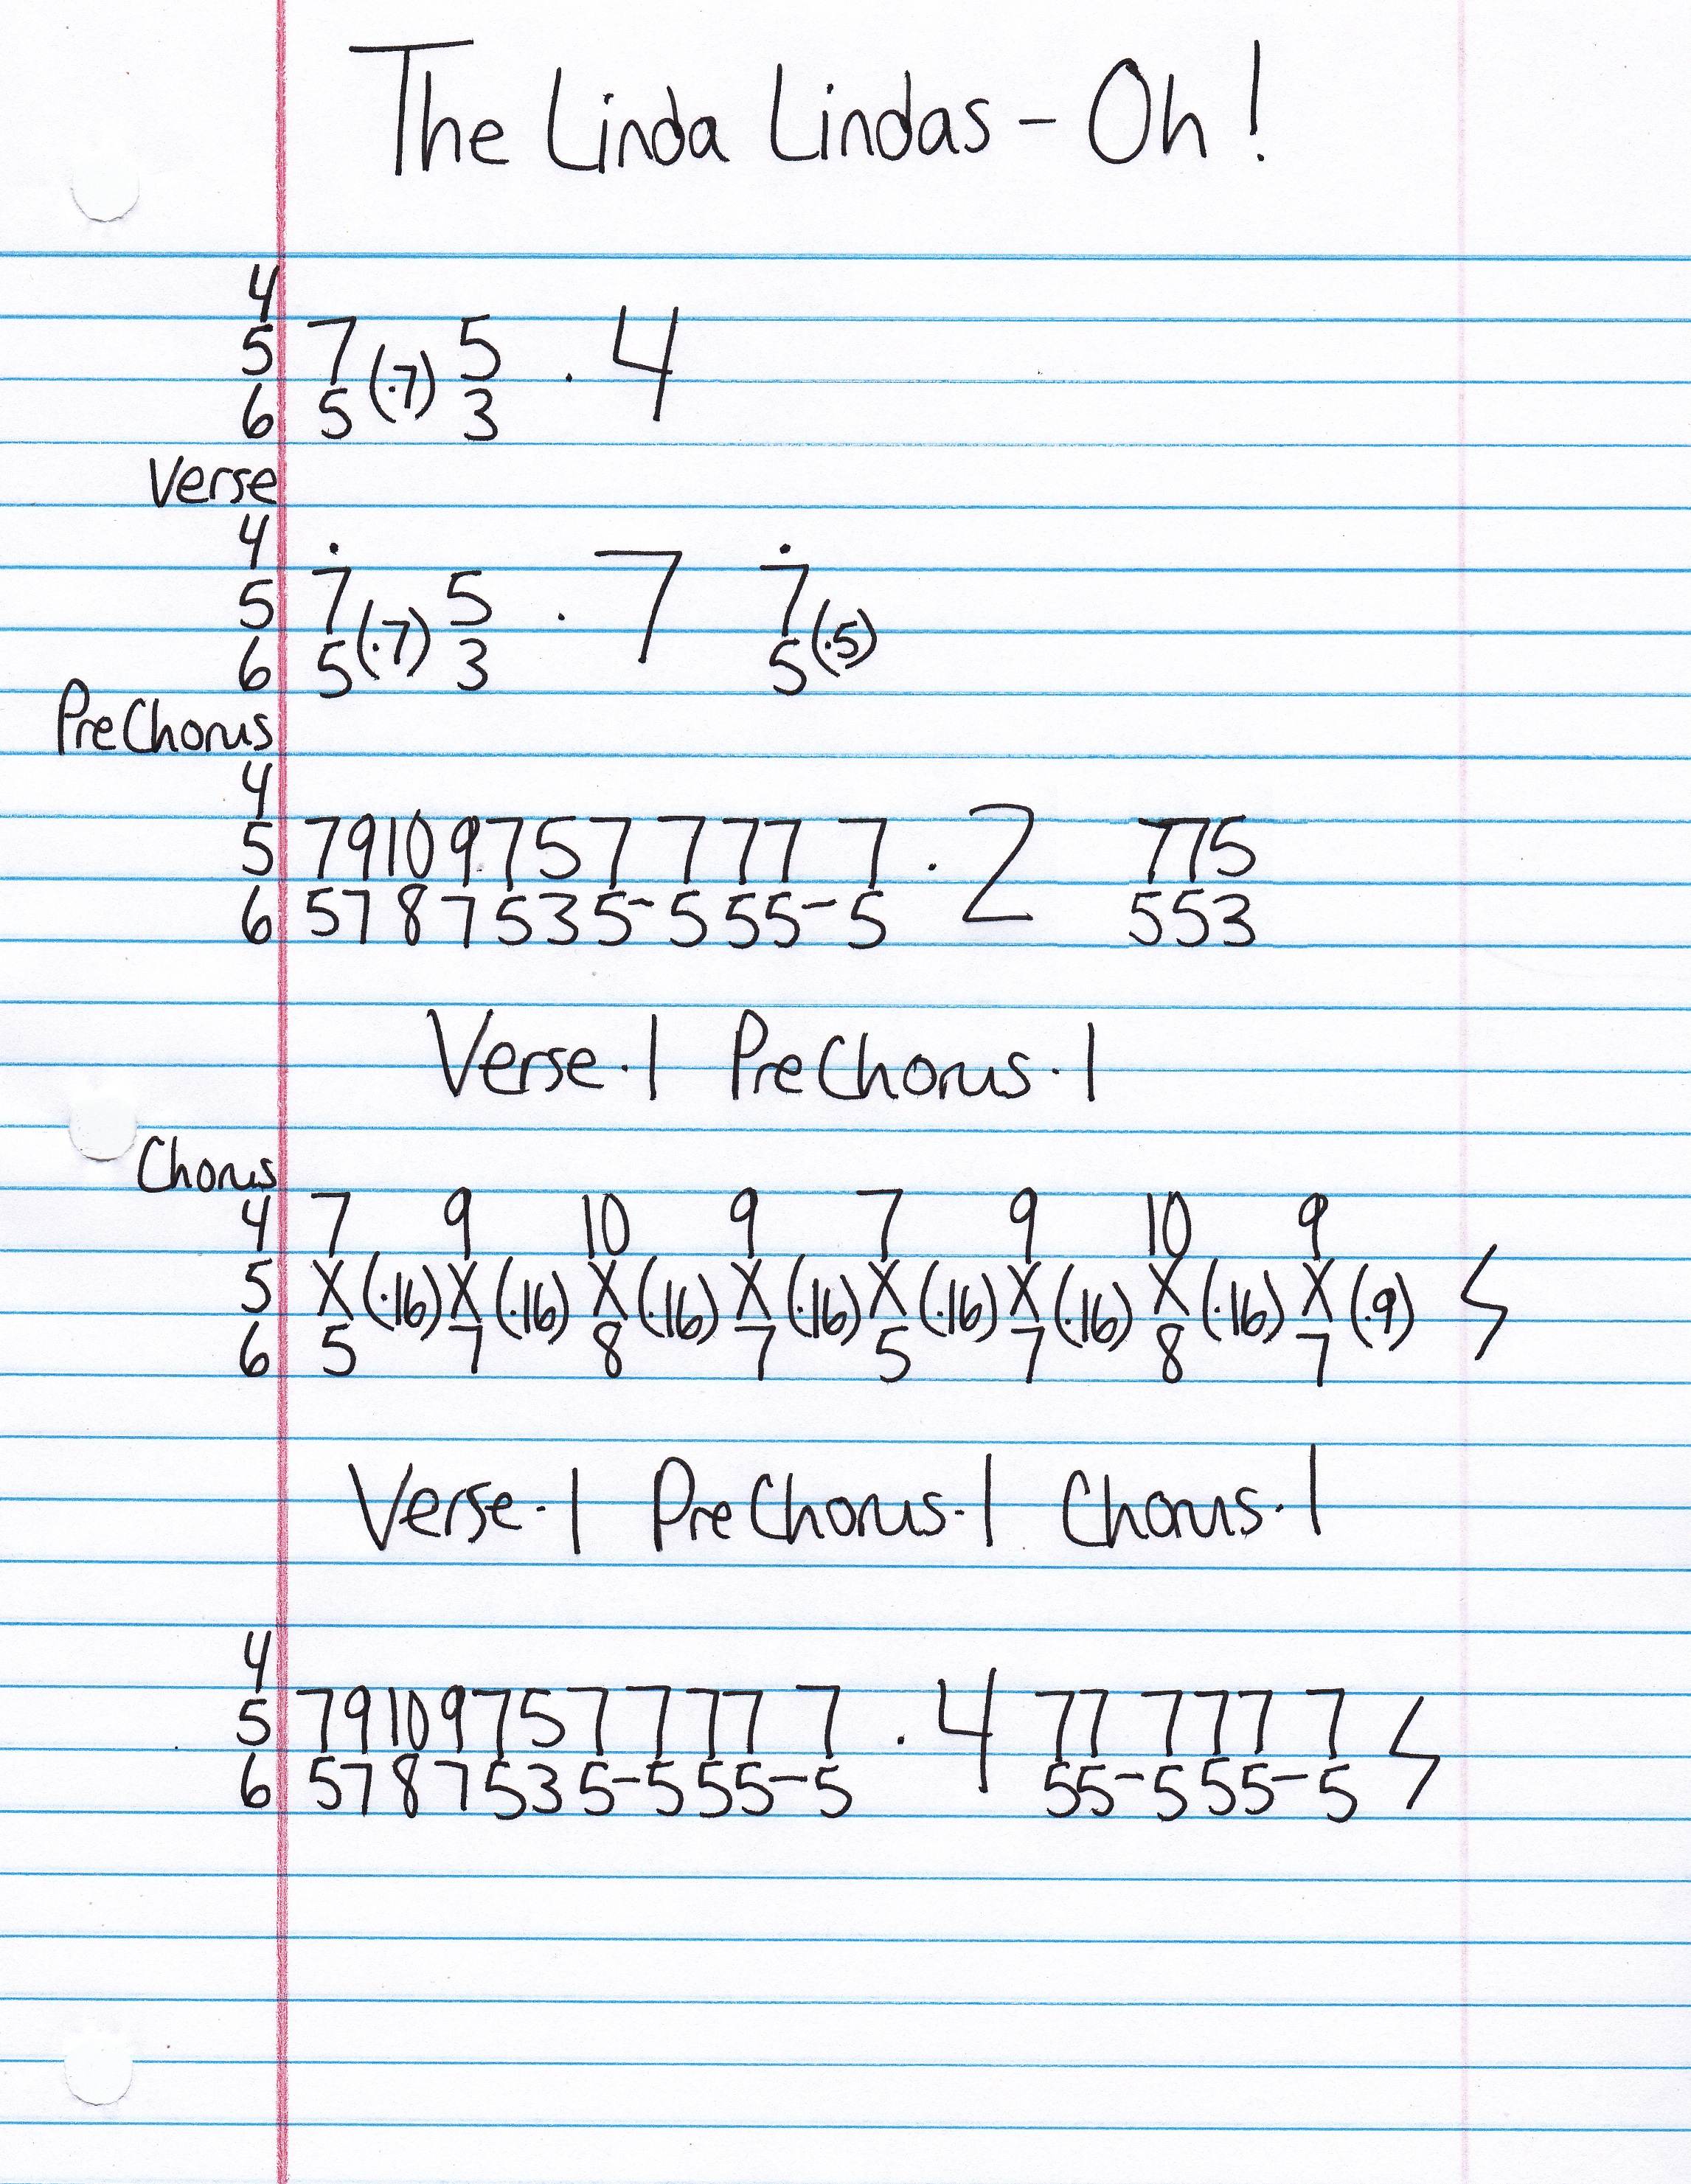 The Linda Lindas - Oh!
4
5 7 5
(.7) . 4
6 5 3
Verse
4 . .
5 7 5 7
(.7) . 7 (.5)
6 5 3 5
PreChorus
4
5 7 9 10 9 7 5 7 7 7 7 7 . 2 7 7 5
6 5 7 8 7 5 3 5 - 5 5 5 - 5 5 5 3
Verse.1 PreChorus.1
Chorus
4 7 9 10 9 7 9 10 9
5 X (.16) X (.16) X (.16) X (.16) X (.16) X (.16) X (.16) X (.9)
6 5 7 8 7 5 7 8 7
Verse.1 PreChorus.1 Chorus.1
4
5 7 9 10 9 7 5 7 7 7 7 7 . 4 7 7 7 7 7 7
6 5 7 8 7 5 3 5 - 5 5 5 - 5 5 5 - 5 5 5 - 5